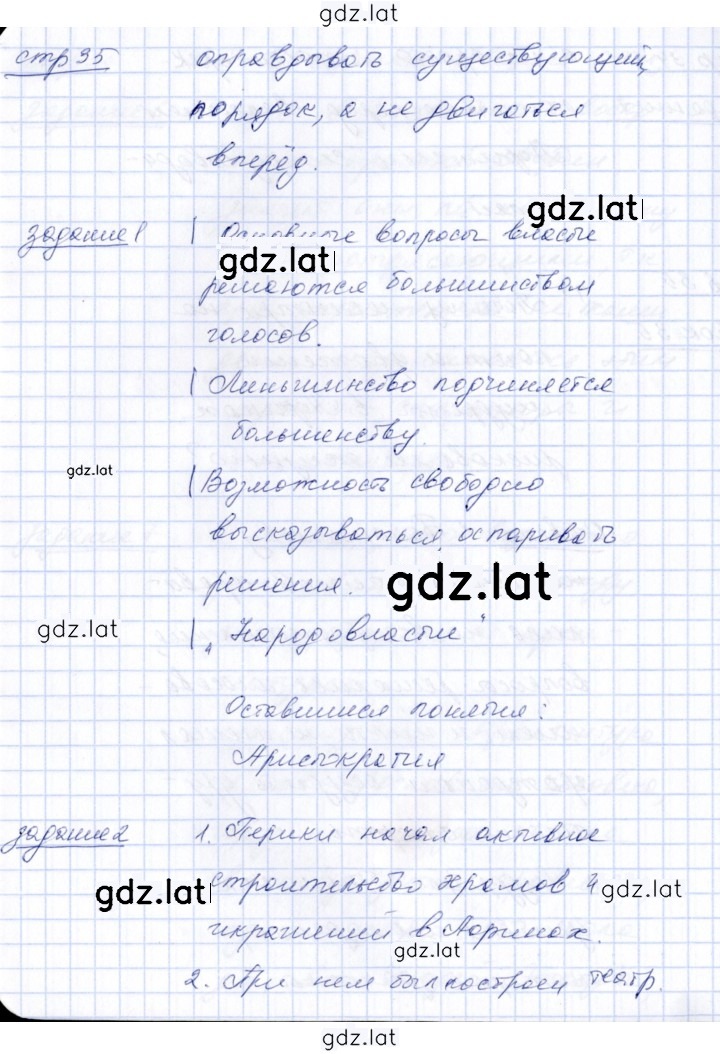 gdz.lat
стр 35 оправдывать существующий
порядок, а не двигаться
вперёд.
gdz.latl
задание 1 | Основные вопросы власые
gdz.latl
решаются большинством
голосов.
| Меньшинство подчиняется
большенству.
gdz.lat
| Возможность свободно
высказываться, оспаривать
решения.
gdz.lat
gdz.lat
| "Народовластии"
Оставшиеся понятия:
Аристократия
задание 2 1. Перикл начал активное
gdz.latl
строительство храмов и
gdz.lat
украшений в Афинах.
gdz.lat
2. При нем был построен театр.
gdz.lat